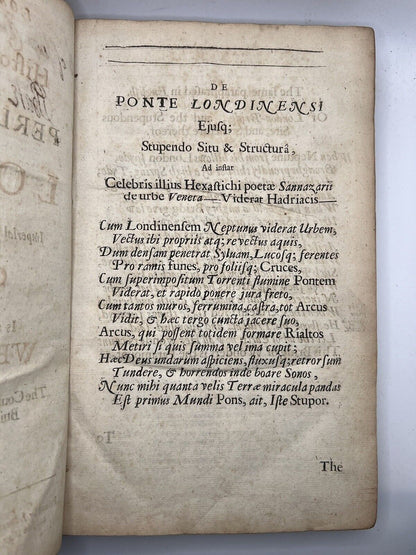 DE
PONTE LONDINENSI
Ejusq;
Stupendo Situ & Structurâ,
Ad instar
Celebris illius Hexastichi poetæ Sannazarii
de urbe Veneta—Viderat Hadriacis—
Cum Londinensem Neptunus viderat Urbem,
Vectus ibi propriis atq; revectus aquis,
Dum densam penetrat Syluam, Lucosq; ferentes
Pro ramis funes, pro foliisq; Cruces,
Cum superimpositum Torrenti flumine Pontem
Viderat, et rapido ponere jura freto,
Cum tantos muros, ferrumina, castra, tot Arcus
Vidit, & hæc tergo cuncta jacere suo,
Arcus, qui possent totidem formare Rialtos
Metiri si quis summa vel ima cupit;
Hæc Deus undarum aspiciens, fluxusq; retrorsum
Tundere, & horrendos inde boare Sonos,
Nunc mihi quanta velis Terræ miracula pandas
Est primus Mundi Pons, ait, Iste Stupor.
The